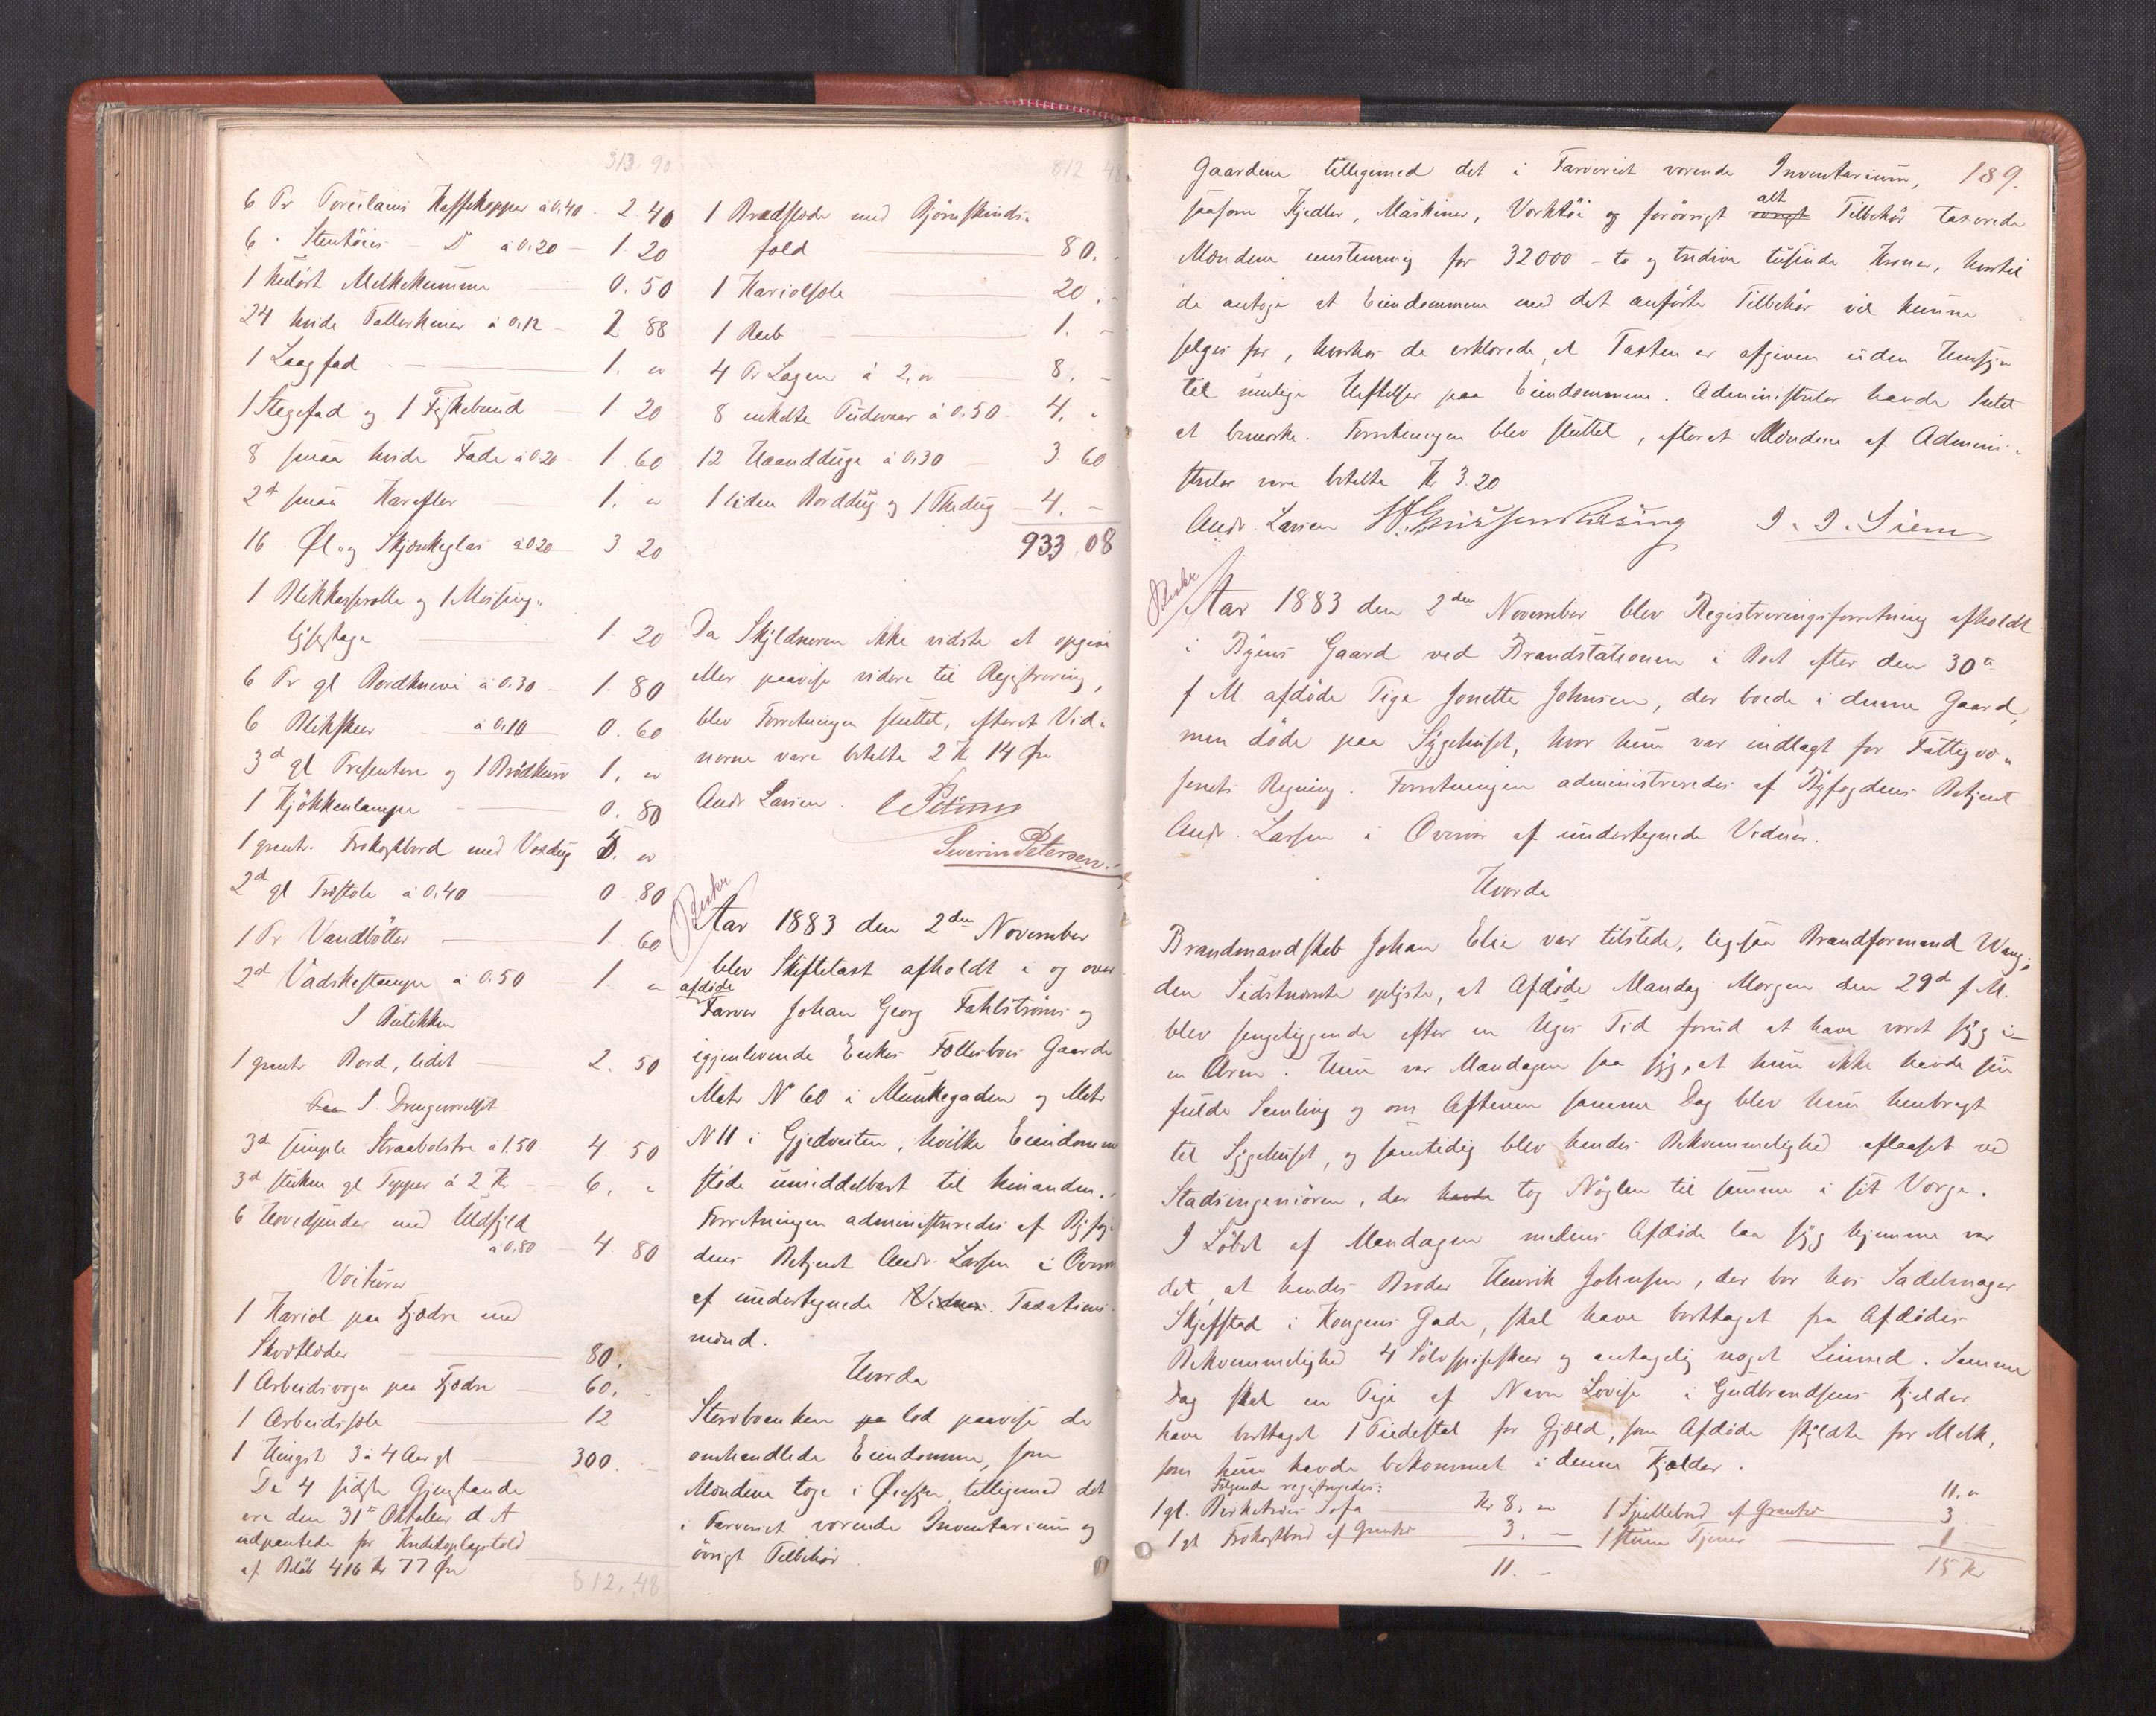 313.90
6 Pr Porcelains Kaffekopper à 0.40 - 2 40
6 " Stentöis - Do à 0.20 - 1. 20
1 kulört Melkekumme 0. 50
24 hvide Tallerkener à 0.12 - 2 88
1 Laagfad - 1. "
1 Stegefad og 1 Fiskebund 1 20
8 smaa hvide Fade à 0.20 - 1 60
2 d smaa Karafler 1. "
16 Øl- og Skjænkeglas à 0.20 3. 20
1 Blikkasserolle og 1 Messing-
lysestage 1. 20
6 Pr gl Bordknive à 0.30 - 1. 80
6 Blikskeer à 0.10 0. 60
3 d gl Presentere og 1 Brödkurv 1. "
1 Kjökkenlampe 0. 80
1 grantr. Frokostbord med Voxdug "
2 d gl Træstole à 0.40 0 80
1 Pr Vandbötter 1. 60
2 d Vadskestampe à 0.50 1. "
I Butikken
1 grantr Bord, lidet 2. 50
Paa I Drengeværelset
3 d simple Straabolstre à 1.50 4. 50
3 d stukne gl Tepper à 2 Kr 6. "
6 Hovedpuder med Uldfyld
à 0.80 4. 80
Voiturer
1 Kariol paa Fjædre med
Skvætlæder 80. -
1 Arbeidsvogn paa Fjædre 60. -
1 Arbeidssæle 12
1 Hingst 3 à 4 Aar gl 300. -
De 4 sidste Gjenstande
ere den 31te Oktober d. A
udpantede for Kreditoplagstold
af Beløb 416 Kr 77 Øre
812.48
812 48
1 Bredslæde med Bjørneskinds-
fæld 80. -
1 Kariolsæle 20. -
1 Reeb 1. -
4 Pr Lagen à 2, " 8. -
8 enkelte Pudevaar à 0.50 4. "
12 Haandduge à 0.30 3. 60
1 liden Borddug og 1 Thedug - 4. -
933 08
Da Skyldneren ikke vidste at opgive
eller paavise videre til Registrering,
blev Forretningen sluttet, efterat Vid-
nerne vare betalte 2 Kr 14 Øre
Andr Larsen.
Severin Petersen.
Aar 1883 den 2den November
blev Skiftetaxt afholdt i og over
afdöde
Farver Johan Georg Fahlströms og
igjenlevende Enkes Fællesboes Gaarde
Matr No 60 i Munkegaden og Matr
N 11 i Gjedveiten, hvilke Eiendomme
støde umiddelbart til hinanden.
Forretningen administreredes af Byfog-
dens Betjent Andr. Larsen i Overvær
af undertegnede Vidner. Taxations-
mænd.
Hvorda
Stervboenken pa lod paavise de
omhandlede Eiendomme, som
Mændene toge i Øiesyn tilligemed det
i Farveriet værende Inventarium og
øvrigt Tilbehør.
189.
Gaardene tilligemed det i Farveriet værende Inventarium,
alt
saasom Kjedler, Maskiner, Værktöi og forövrigt øvrigt Tilbehör taxerede
Mændene eenstemmig for 32000 - to og tredive tusinde Kroner, hvortil
de antoge at Eiendommene med det anförte Tilbehör vil kunne
sælges for, hvorhos de erklærede, at Taxten er afgiven uden Hensyn
til mulige Heftelser paa Eiendommene. Administrator havde Intet
at bemærke. Forretningen blev sluttet, efterat Mændene af Admini-
strator vare betalte Kr 3.20
Andr. Larsen
Aar 1883 den 2den November blev Registreringsforretning afholdt
i Byens Gaard ved Brandstationen i Boet efter den 30te
f M afdöde Pige Jonette Johnsen, der boede i denne Gaard,
men döde paa Sygehuset, hvor hun var indlagt for Fattigvæ-
senets Regning. Forretningen administreredes af Byfogdens Betjent
Andr. Larsen i Overvær af undertegnede Vidner.
Hvorda
Brandmandskab Johan Elie var tilstede, ligesaa Brandformand Wang;
den Sidstnævnte oplyste, at Afdöde Mandag Morgen den 29de f M.
blev sengeliggende efter en Uges Tid forud at have været syg i
en Arm. Hun var Mandagen saa syg, at hun ikke havde sin
fulde Samling og om Aftenen samme Dag blev hun henbragt
til Sygehuset, og samtidig blev hendes Bekvemmelighed aflaaset ved
Stadsingeniören, der havde tog Nöglen til samme i sit Værge.
I Löbet af Mandagen medens Afdöde laa syg hjemme var
det, at hendes Broder Henrik Johnsen, der bor hos Sadelmager
Skjefstad i Kongens Gade, skal have borttaget fra Afdödes
Bekvemmelighed 4 Sölvspiseskeer og antagelig noget Linned. Samme
Dag skal en Pige af Navn Lovise i Gudbrandsens Kjelder
have borttaget 1 Piedestal for Gjæld, som Afdöde skyldte for Melk,
som hun havde bekommet i denne Kjelder.
Følgende registreredes:
1 gl. Birketræes Sofa Kr 8. "
1 gl Frokostbord af Grantræ 3. -
11. -
11. "
1 Spillebord af Grantræ 3
1 stum Tjener 1 -
15 Kr